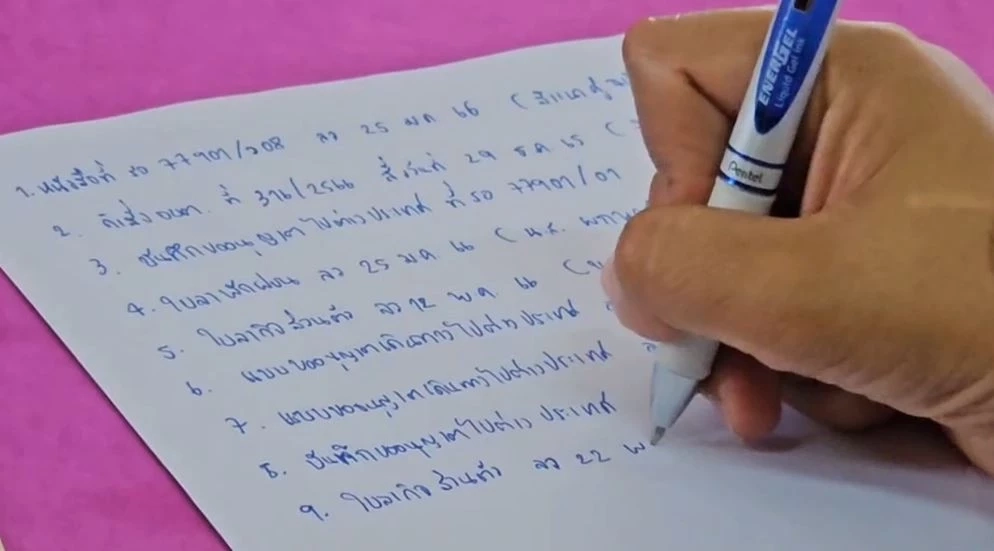 1. หนังสือที่ รอ 77901/208 ลว 25 มค 66 (
2. คำสั่ง อบต. ที่ 316/2566 สั่งวันที่ 29 ธค 65 (
3. บันทึกขออนุญาตไปต่างประเทศ ที่ รอ 77901/01
4. ใบลาพักผ่อน ลว 25 มค 66 ( น.ส.
5. ใบลากิจส่วนตัว ลว 12 พค 66 (
6. แบบขออนุญาตเดินทางไปต่างประเทศ
7. แบบขออนุญาตเดินทางไปต่างประเทศ
8. บันทึกขออนุญาตไปต่างประเทศ
9. ใบลากิจส่วนตัว ลว 22 พ
ENERGEL
Liquid Gel Ink
Pentel